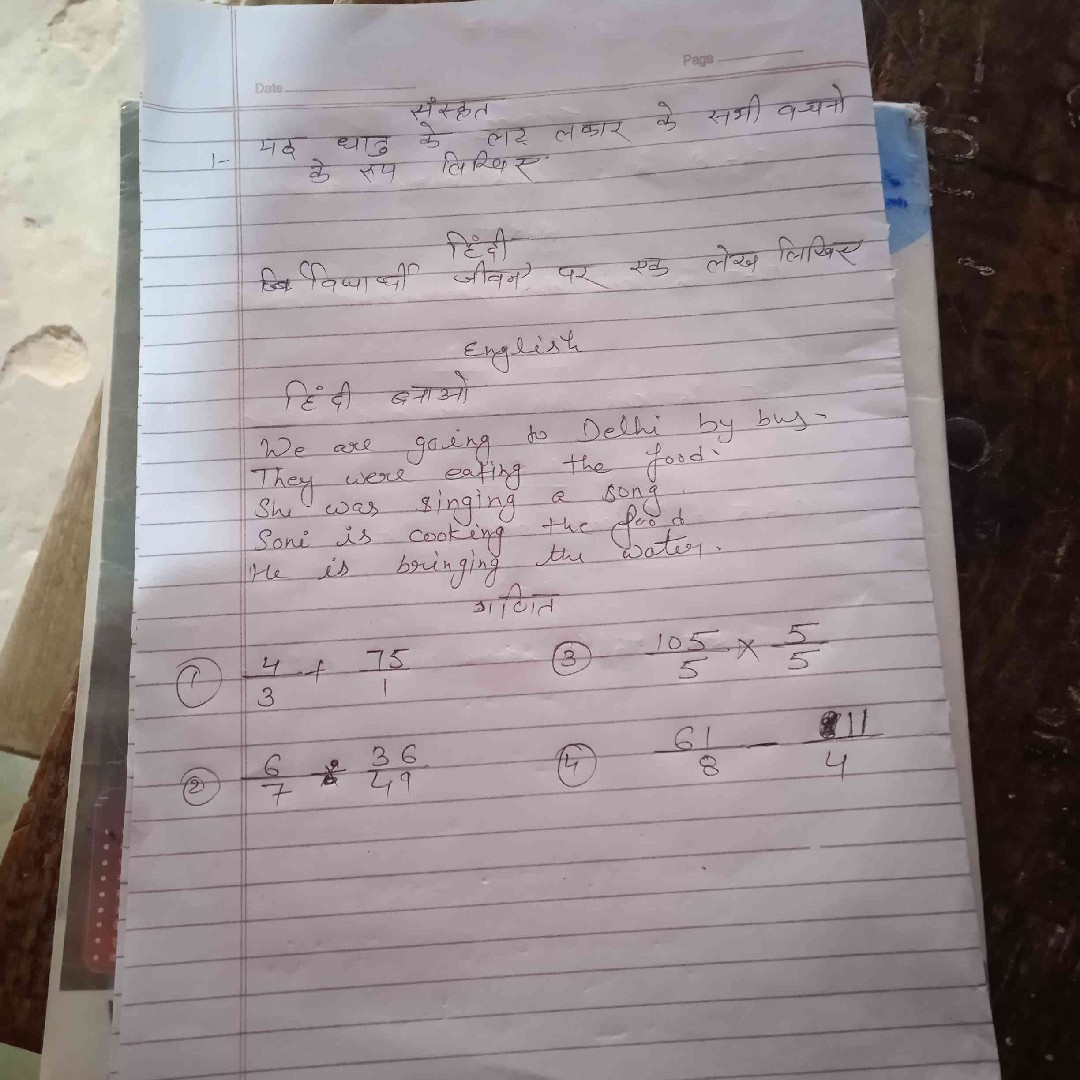 Date
Page
संस्कृत
1- पठ धातु के लट लकार के सभी वचनो
के रूप लिखिए
हिंदी
विद्यार्थी जीवन पर एक लेख लिखिए
English
हिंदी बनाओ
We are going to Delhi by bus-
They were eating the food.
She was singing a song.
Soni is cooking the food
He is bringing the water.
गणित
① 4/3 + 75/1
③ 105/5 × 5/5
② 6/7 ÷ 36/49
④ 61/8 - 11/4